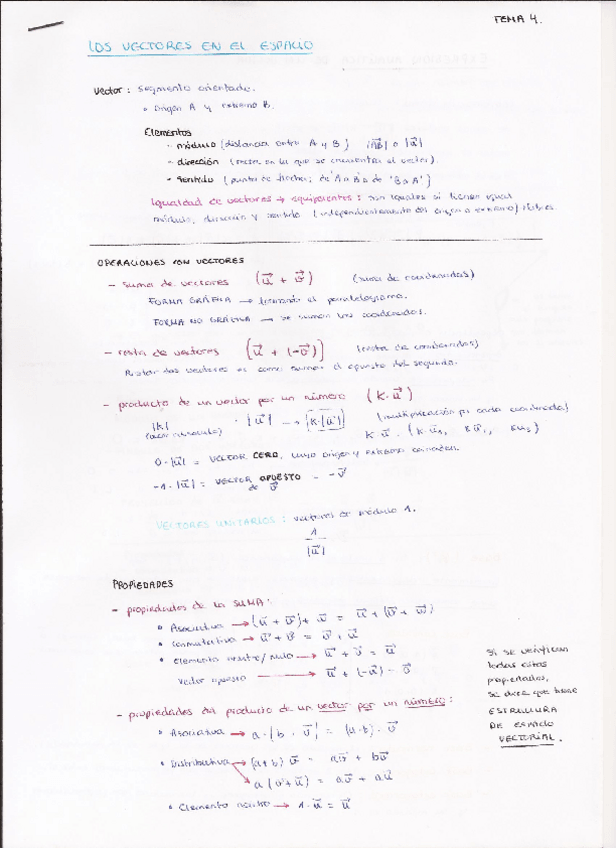 TEMA 4.
LOS VECTORES EN EL ESPACIO
Vector: segmento orientado.
• Origen A y extremo B.
Elementos
• módulo (distancia entre A y B) |AB| o |u|
• dirección (recta en la que se encuentra el vector).
• sentido (punta de flecha; de A a B o de B a A)
Igualdad de vectores → equipolentes: son iguales si tienen igual
módulo, dirección y sentido (independientemente del origen o extremo) libres.
OPERACIONES CON VECTORES
- suma de vectores (u⃗ + v⃗) (suma de coordenadas)
FORMA GRÁFICA → formando el paralelogramo.
FORMA NO GRÁFICA → se suman las coordenadas.
- resta de vectores (u⃗ + (-v⃗)) (resta de coordenadas)
Restar dos vectores es como sumar el opuesto del segundo.
- producto de un vector por un número (k·u⃗)
|k| · |u⃗| → |k·|u⃗|| (multiplicación por cada coordenada)
(valor absoluto) k·u⃗
0·|u⃗| = VECTOR CERO, cuyo origen y extremo coinciden.
-1·|u⃗| = VECTOR OPUESTO de v⃗ - -v⃗
VECTORES UNITARIOS: vectores de módulo 1.
1
|u⃗|
PROPIEDADES
- propiedades de la SUMA:
• Asociativa → (u⃗ + v⃗) + w⃗ = u⃗ + (v⃗ + w⃗)
• Conmutativa → u⃗ + v⃗ = v⃗ + u⃗
• Elemento neutro/nulo → u⃗ + v⃗ = u⃗
Vector opuesto → u⃗ + (-u⃗) = 0⃗
- propiedades del producto de un vector por un número:
• Asociativa → a·(b·v⃗) = (a·b)·v⃗
• Distributiva → (a+b) v⃗ = av⃗ + bv⃗
→ a(v⃗+u⃗) = av⃗ + au⃗
• Elemento neutro → 1·u⃗ = u⃗
Si se verifican
todas estas
propiedades,
se dice que tiene
ESTRUCTURA
DE ESPACIO
VECTORIAL.